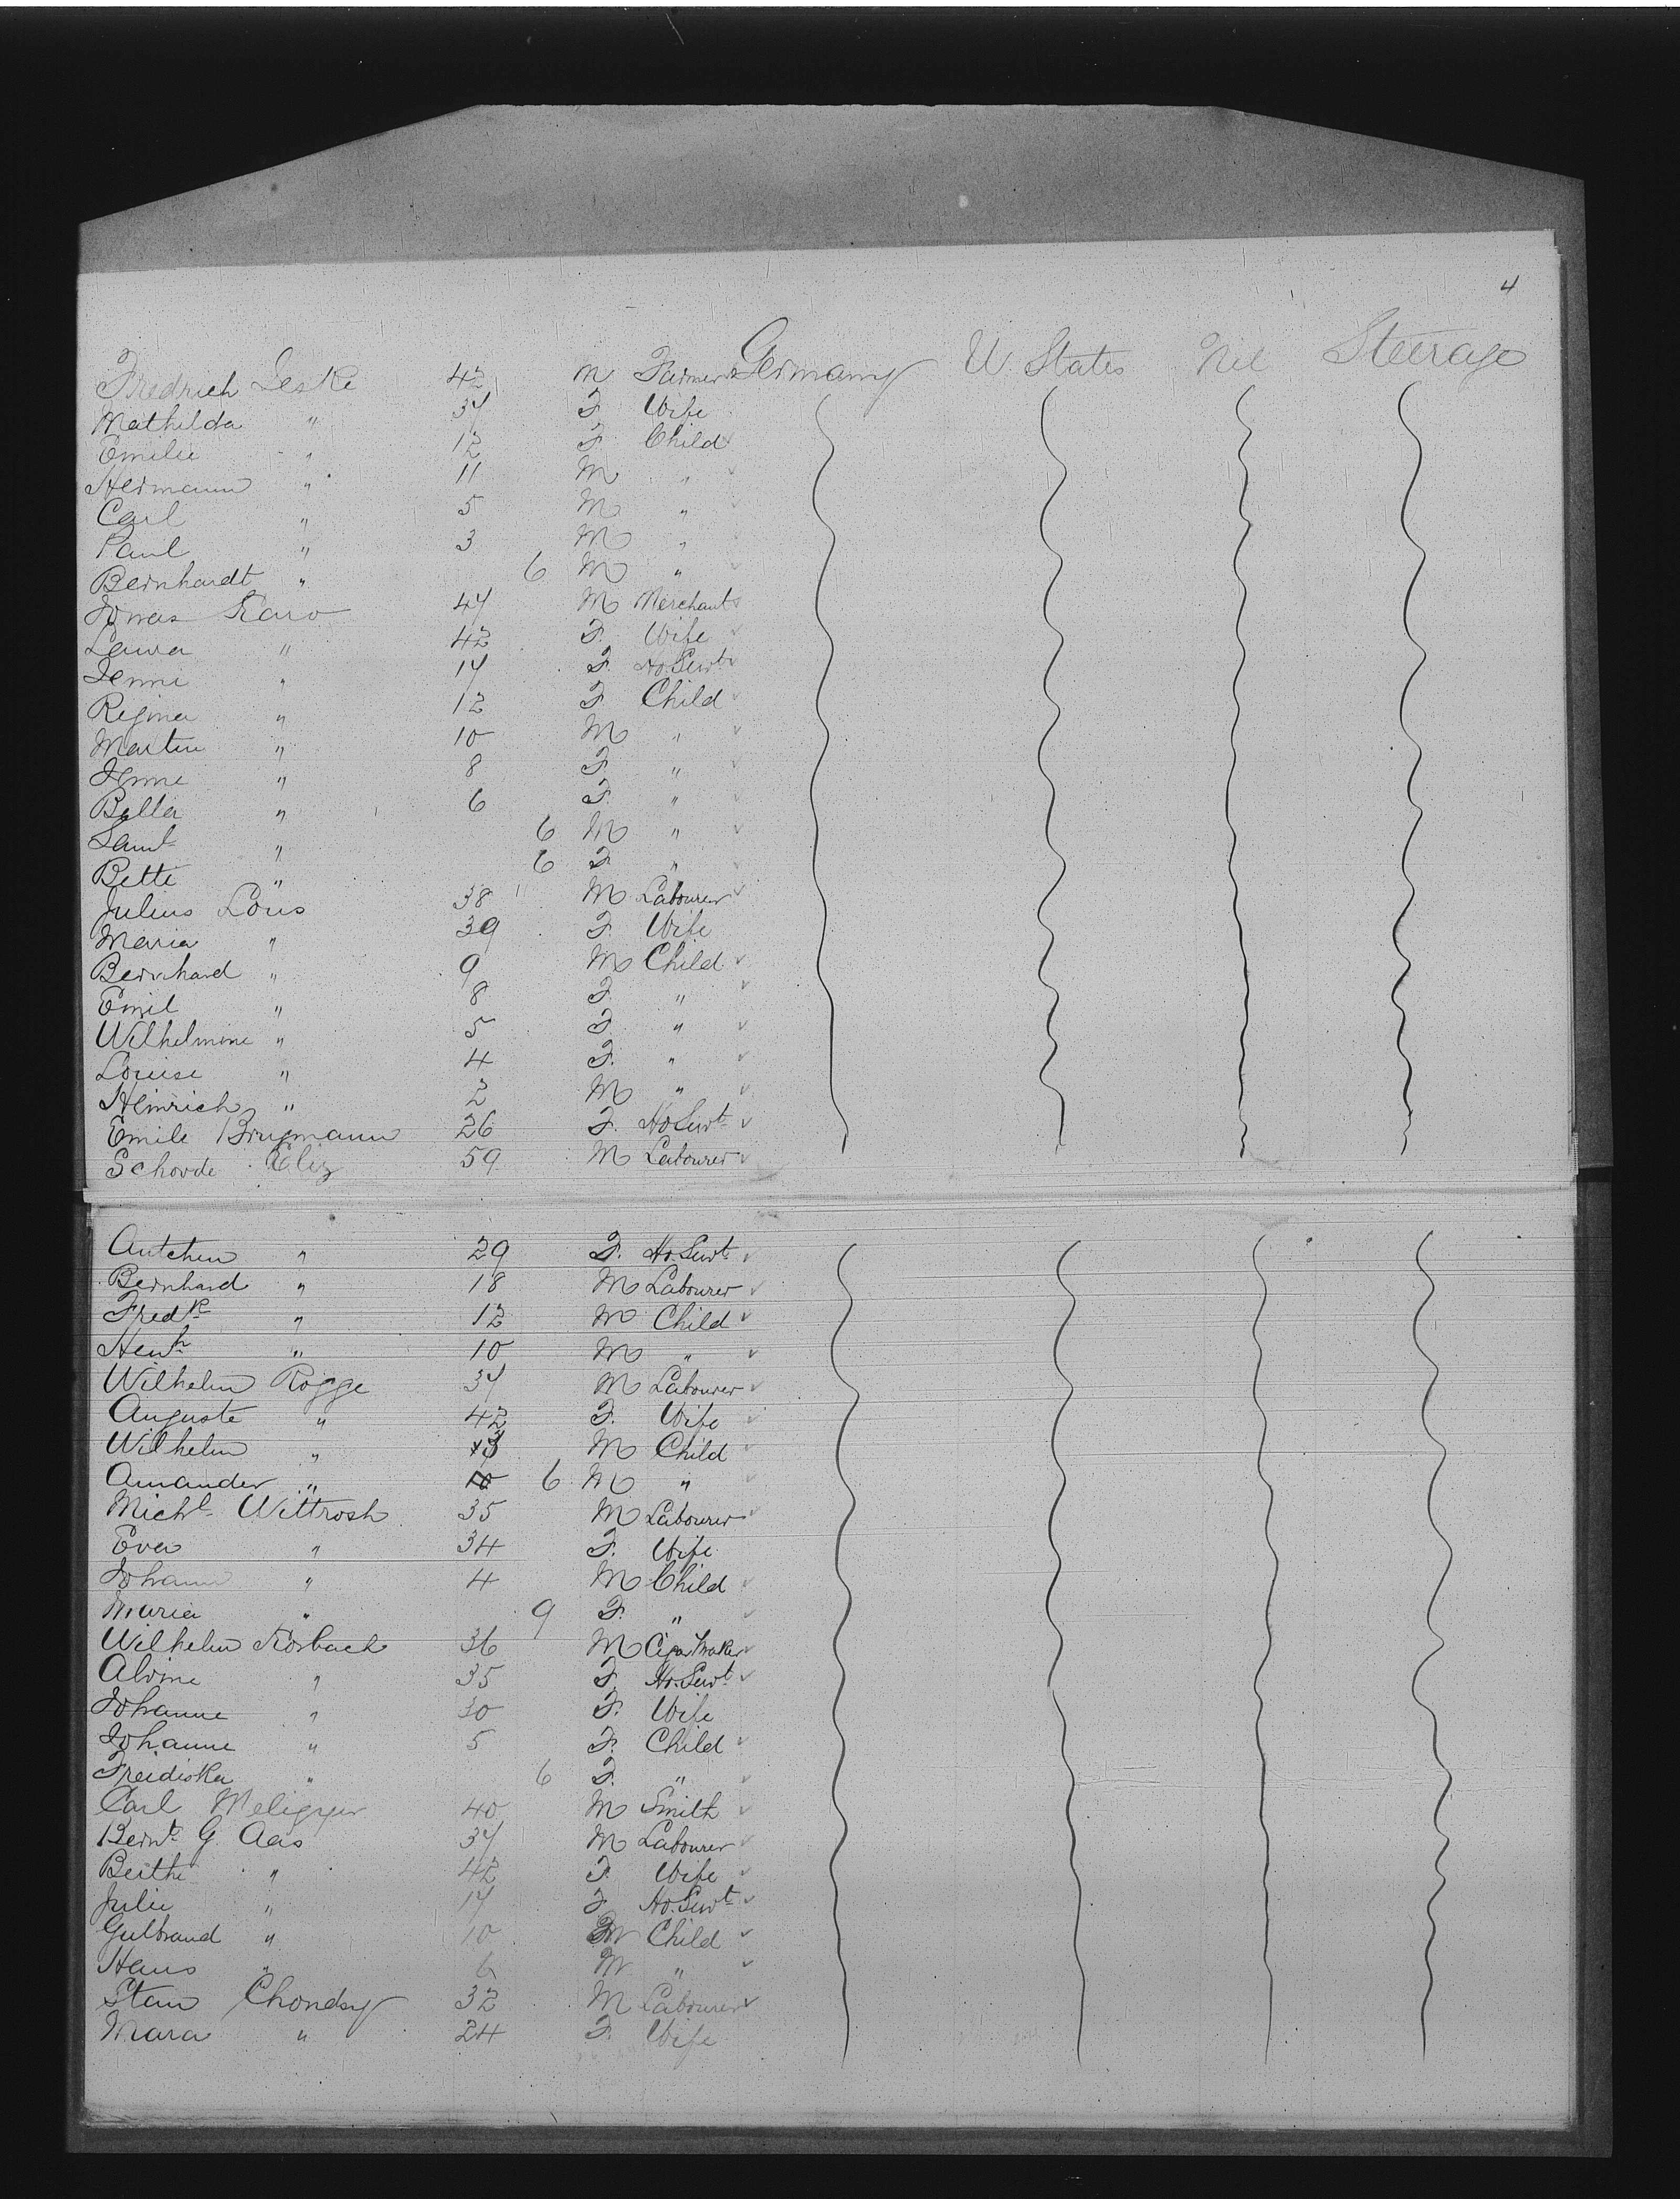 4
Fredrich Leske 42 M Farmer Germany U. States Nil Steerage
Mathilda " 37 F. Wife
Emilie " 12 F. Child
Hermann " 11 M "
Carl " 5 M "
Paul " 3 M "
Bernhardt " 6 M "
Jonas Karo 47 M Merchant
Laura " 42 F. Wife
Jenni " 17 F. Ho. Servt
Regina " 12 F. Child
Martin " 10 M "
Jenne " 8 F. "
Bella " 6 F. "
Saml " 6 M "
Bette " 6 F. "
Julius Loris 38 M Labourer
Maria " 39 F. Wife
Bernhard " 9 M Child
Emil " 8 F. "
Wilhelmine " 5 F. "
Louise " 4 F. "
Heinrich " 2 M "
Emile Brugmann 26 F. Ho Servt
Schovde Eliz 59 M Labourer
Antchen " 29 F. Ho. Servt
Bernhard " 18 M Labourer
Fredk " 12 M Child
Henh " 10 M "
Wilhelm Rogge 37 M Labourer
Auguste " 42 F. Wife
Wilhelm " 3 M Child
Amander " 6 M "
Michl Wittrosh 35 M Labourer
Eva " 34 F. Wife
Johann " 4 M Child
Maria " 9 F. "
Wilhelm Korbach 36 M Cigar Maker
Alvine " 35 F. Ho. Servt
Johanne " 30 F. Wife
Johanne " 5 F. Child
Freidiska " 6 F. "
Carl 40 M Smith
Bernt G. Aas 37 M Labourer
Berthe " 42 F. Wife
Julie " 17 F Ho. Servt
Gulbrand " 10 M Child
Hans " 6 M "
Stan Chondsy 32 M Labourer
Mara " 24 F. Wife